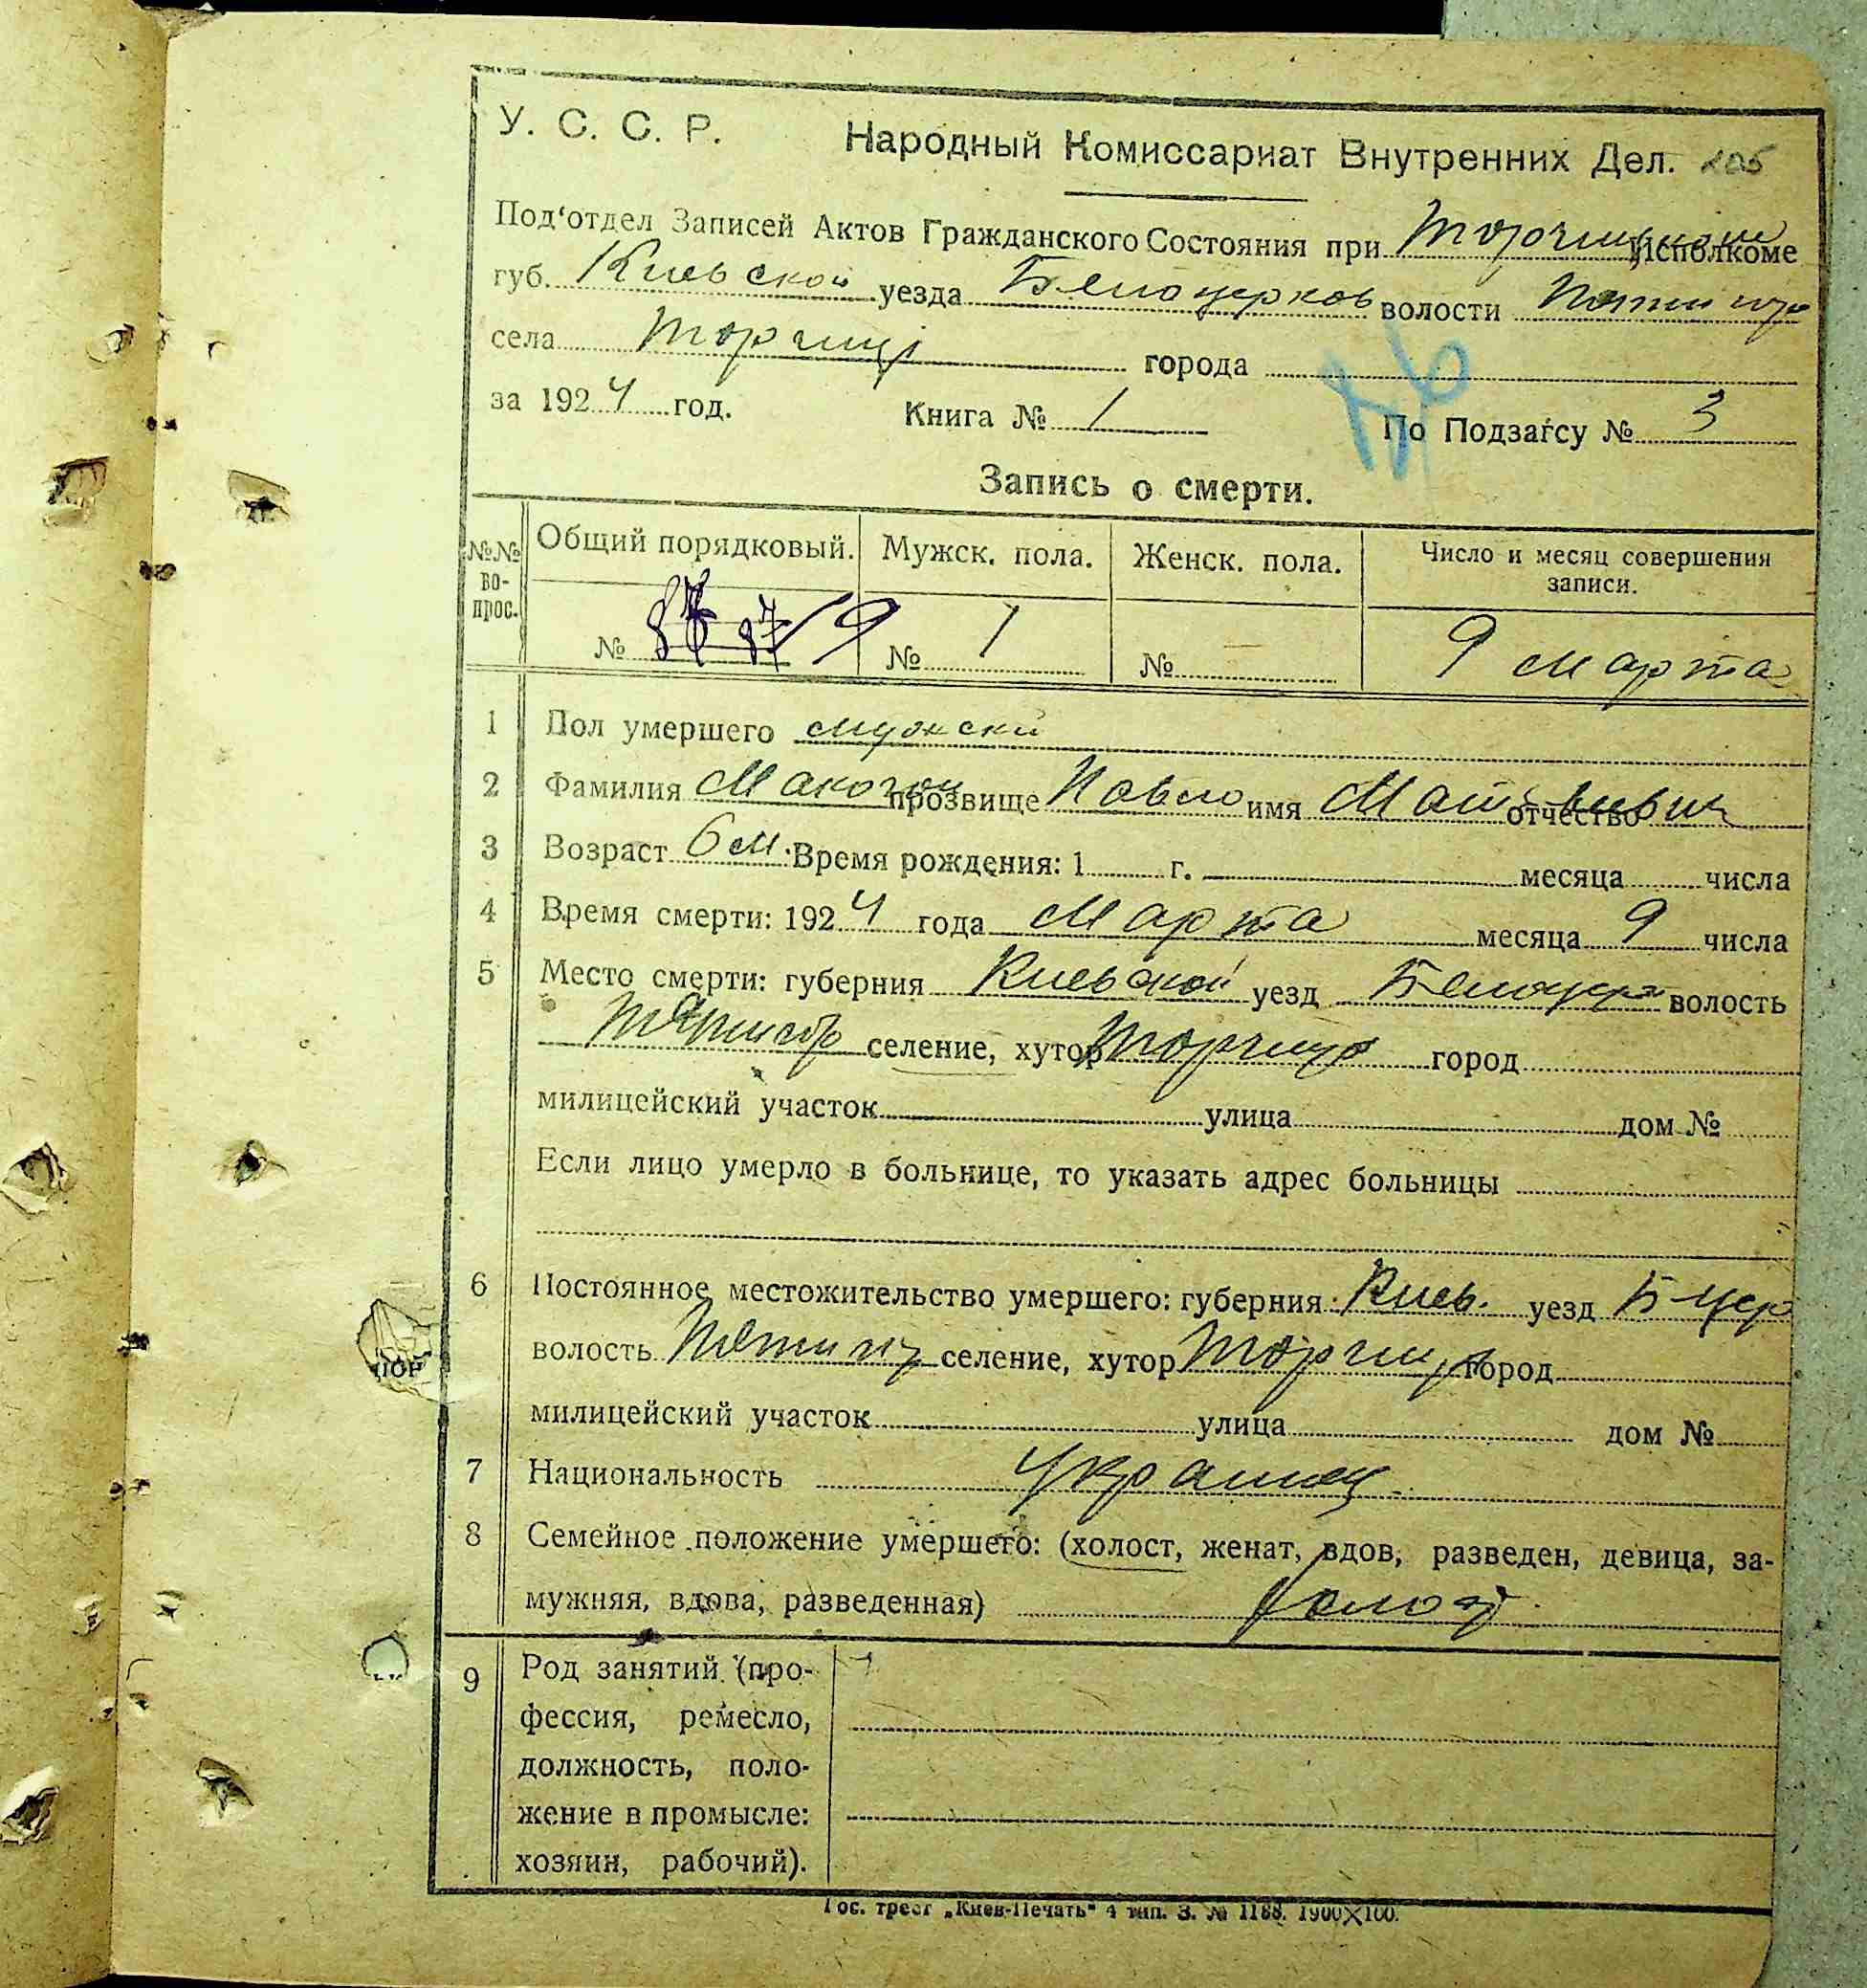 У. С. С. Р. Народный Комиссариат Внутренних Дел. 205
Под'отдел Записей Актов Гражданского Состояния при Исполкоме
губ. Киевской уезда Белоцерков волости
села Торчиці города
за 1924 год. Книга № 1 По Подзагсу № 3
Запись о смерти.
№№ во-прос. Общий порядковый. Мужск. пола. Женск. пола. Число и месяц совершения записи.
№ 9 № 1 № — 9 марта
1 Пол умершего мужски
2 Фамилия Макогон прозвище Павло имя отчество
3 Возраст 6 м. Время рождения: 1 г. месяца числа
4 Время смерти: 1924 года Марта месяца 9 числа
5 Место смерти: губерния Киевской уезд Белоцер волость
селение, хутор город
милицейский участок улица дом №
Если лицо умерло в больнице, то указать адрес больницы
6 Постоянное местожительство умершего: губерния Киев. уезд Б-цер
волость селение, хутор город
милицейский участок улица дом №
7 Национальность Украинец
8 Семейное положение умершего: (холост, женат, вдов, разведен, девица, за-
мужняя, вдова, разведенная) холост
9 Род занятий (про-
фессия, ремесло,
должность, поло-
жение в промысле:
хозяин, рабочий).
Гос. трест „Киев-Печать" 4 тип. З. № 1188. 1900×100.